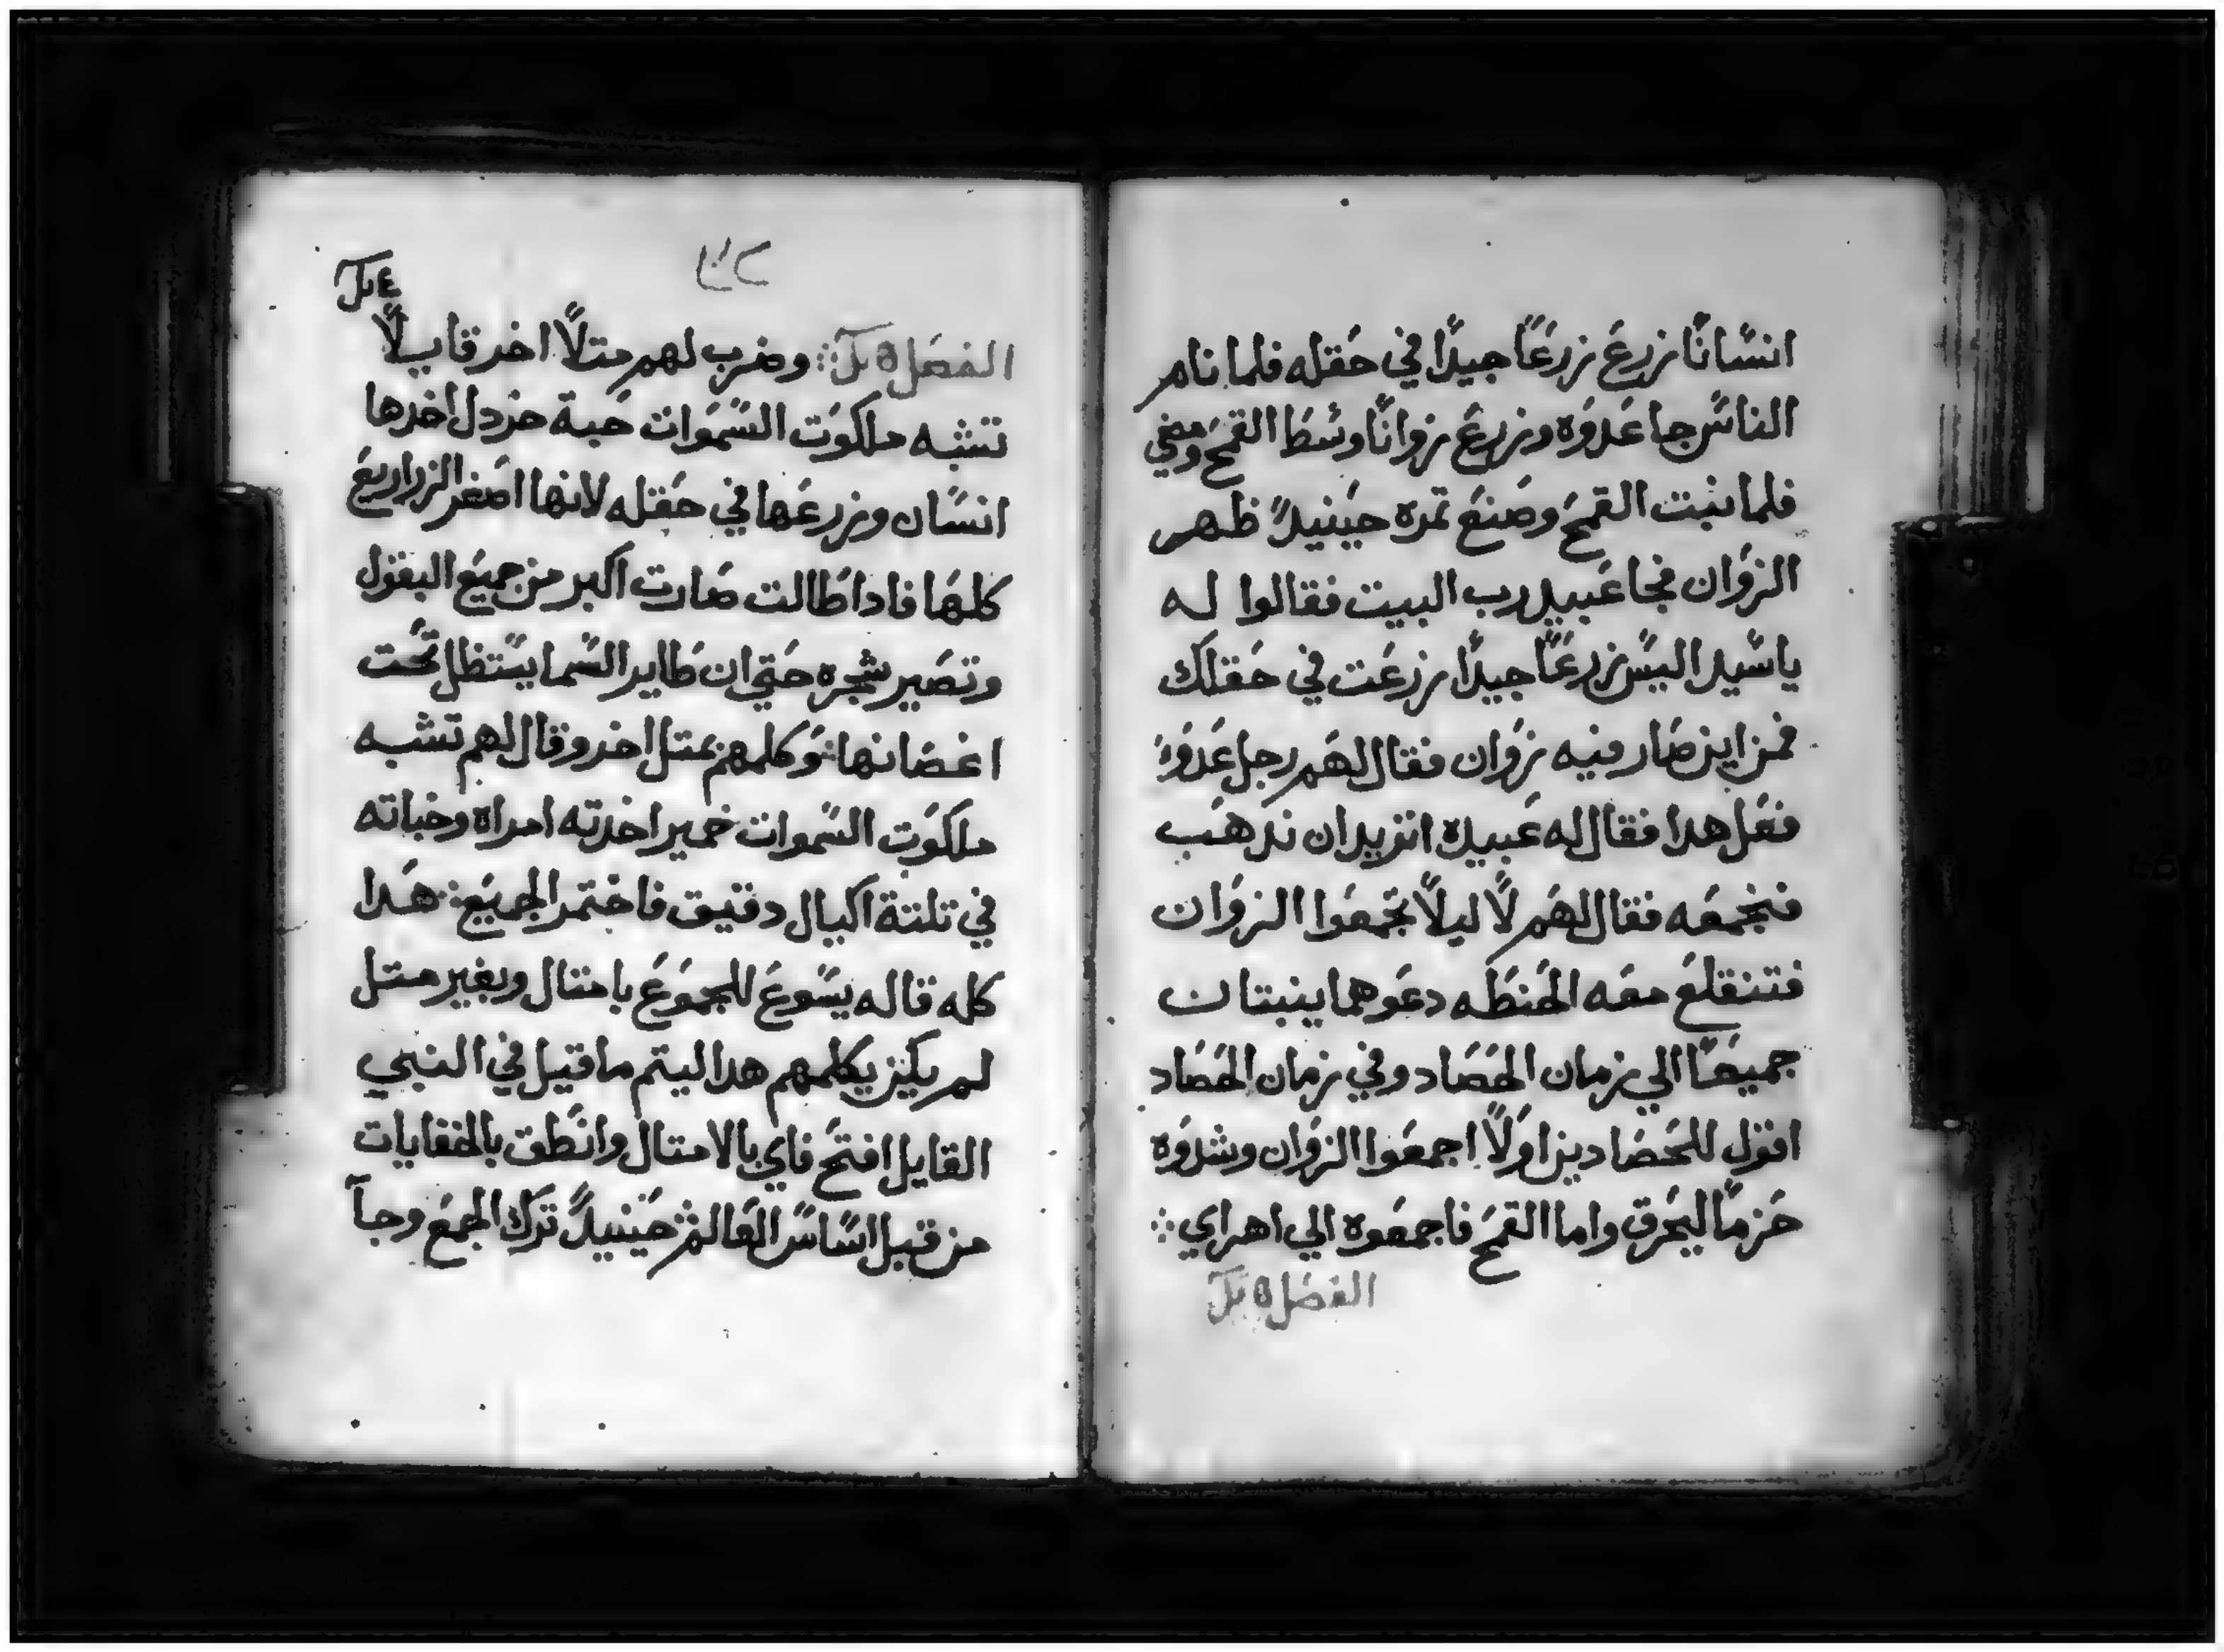 انسانًا زرع زرعًا جيدًا في حقله فلما نام
الناس جا عدوه وزرع زوانًا وسط القمح ومضي
فلما نبت القمح وصنع تمره حينيدً ظهر
الزوان فجا عبيد رب البيت فقالوا له
ياسيد اليس زرعًا جيدًا زرعت في حقلك
فمن اين صار فيه زوان فقال لهم رجل عدو
فعل هدا فقال له عبيده اتريد ان ندهب
فنجمعه فقال لهم لا ليلًا تجمعوا الزوان
فتنقلع معه الحنطه دعوهما ينبتان
جميعًا الي زمان الحصاد وفي زمان الحصاد
اقول للحصادين اولًا اجمعوا الزوان وشدوه
حزمًا ليحرق واما القمح فاجمعوه الي اهراي ⁘
الفصل
الفصل ⁘ وضرب لهم متلًا اخر قايلًا
تشبه ملكوت السموات حبة خردل اخدها
انسان وزرعها في حقله لانها اصغر الزراريع
كلها فادا طالت صارت اكبر من جميع البقول
وتصير شجره حتي ان طاير السما يستظل تحت
اغصانها ⁘ وكلمهم بمتل اخر وقال لهم تشبه
ملكوت السموات خمير اخدته امراه وخباته
في تلتة اكيال دقيق فاختمر الجميع ⁘ هدا
كله قاله يسوع للجموع بامتال وبغير متل
لم يكن يكلمهم هدا ليتم ما قيل في النبي
القايل افتح فاي بالامتال وانطق بالخفايات
من قبل اساس العالم ⁘ حينيدً ترك الجمع وجآ